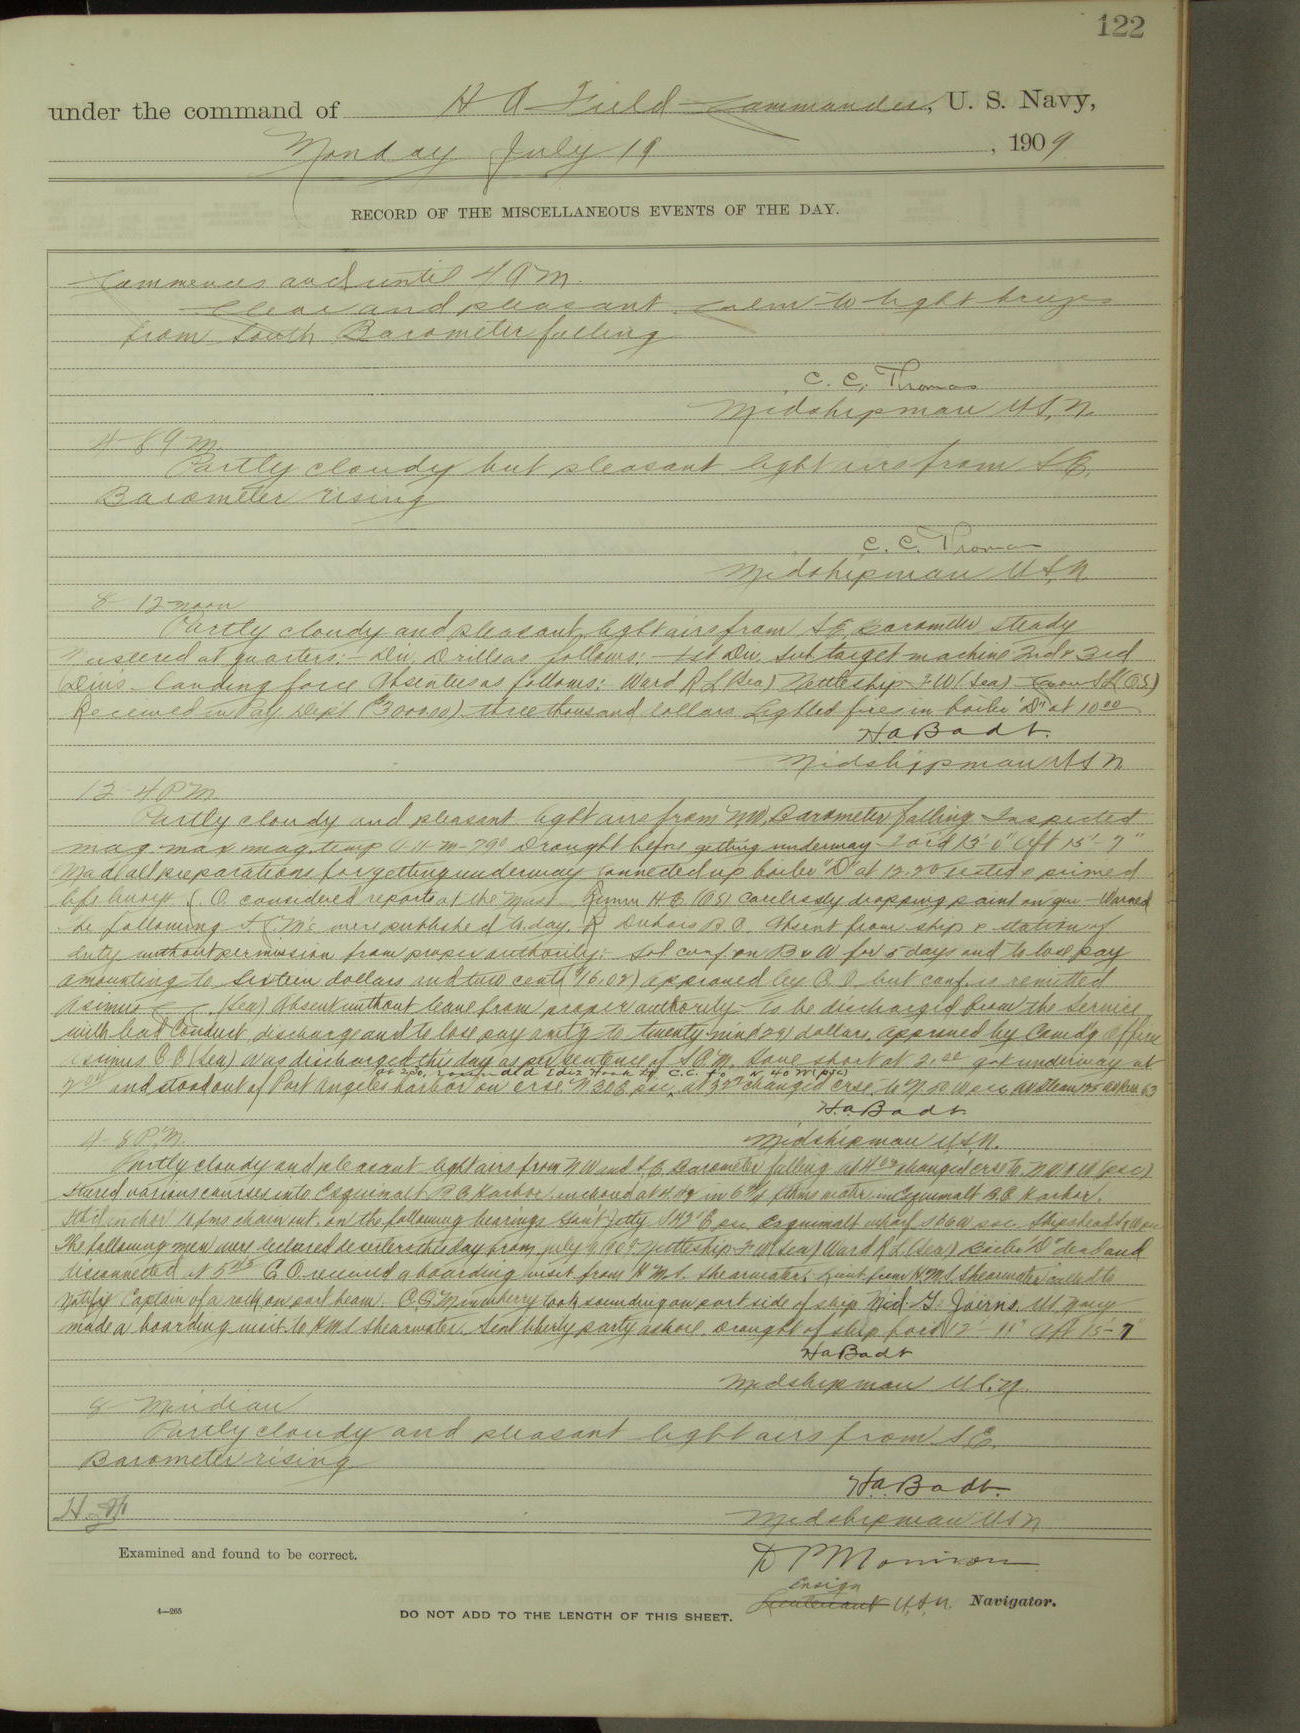 122
under the command of H A Field Commander, U. S. Navy,
Monday July 19, 1909
RECORD OF THE MISCELLANEOUS EVENTS OF THE DAY.
Commences and until 4 A M.
Clear and pleasant. Calm to light breezes
from South Barometer falling
C. C. Thomas
Midshipman U.S.N.
4 8 A M.
Partly cloudy but pleasant light airs from S E.
Barometer rising
C. C. Thomas
Midshipman U.S.N.
8 12 noon
Partly cloudy and pleasant, light airs from S E Barometer steady
Mustered at quarters: Div. Drills as follows: 1st Div. Sub target machine 2nd & 3rd
Divs landing force Absentees as follows: Ward R L (Sea) Nettleship F W (Sea) S L (OS)
Received in Pay Dept ($3000.00) three thousand dollars Lighted fires in boiler "D" at 10 00
H.A. Badt.
Midshipman U S N
12 4 P M
Partly cloudy and pleasant light airs from NW, Barometer falling. Inspected
mag. max mag. temp 79° Draught before getting underway For'd 13' 0" Aft 15'-7"
Made all preparations for getting underway Connected up boiler "D" at 12.20 tested & primed
life buoys C. O. considered reports at the Mast H E (OS) Carelessly dropping paint on gun - Warned
The following S.C.M's were published to day. Dubois B.C. Absent from ship & station of
duty without permission from proper authority: Sol conf. on B & W for 5 days and to lose pay
amounting to Sixteen dollars and two cents ($16.02) approved by C.O. but conf. is remitted
(Sea) Absent without leave from proper authority - To be discharged from the Service
with bad Conduct discharge and to lose pay amtg to twenty nine (29) dollars, approved by Comdg Officer
C C (Sea) was discharged this day as per sentence of S.C.M. Gave short at 2.00 got underway at
at 2.50 rounded Ediz Hook Lt C.C. to N 40 W (psc)
2 and stood out of Port Angeles harbor on crse N 30 E psc, at 3 changed crse to N W psc, Av steam 125 av rev 63
H.A. Badt
Midshipman U.S.N.
4-8 P.M.
Partly cloudy and pleasant light airs from NW and S E Barometer falling at 4 changed crse to N W (psc)
Steered various courses into Esquimalt B C Harbor, anchored at 4. in 6 fthms water in Esquimalt B.C Harbor.
Stbd anchor fms chain out. on the following bearings Gov't Jetty N 42° E psc Esquimalt wharf psc. Shipshead
The following men were declared deserters this day from July 9 1909 Nettleship F.W (Sea) Ward R L (Sea) Boiler "D" dead and
disconnected at 5 C O received a boarding visit from H M.S. Shearwater; from H.M.S. Shearwater called to
notify Captain of a rock on port beam. took sounding on port side of ship Mid. G. Joerns. US Navy
made a boarding visit to HMS Shearwater. Sent liberty party ashore Draught of ship for'd 12'-11" Aft 15'-7"
H A Badt
Midshipman U.S.N.
8 Meridian
Partly cloudy and pleasant light airs from S.E.
Barometer rising
H.A. Badt.
Midshipman U S N
Examined and found to be correct.
D P Morrison
Ensign
Lieutenant U.S.N. Navigator.
4—265
DO NOT ADD TO THE LENGTH OF THIS SHEET.